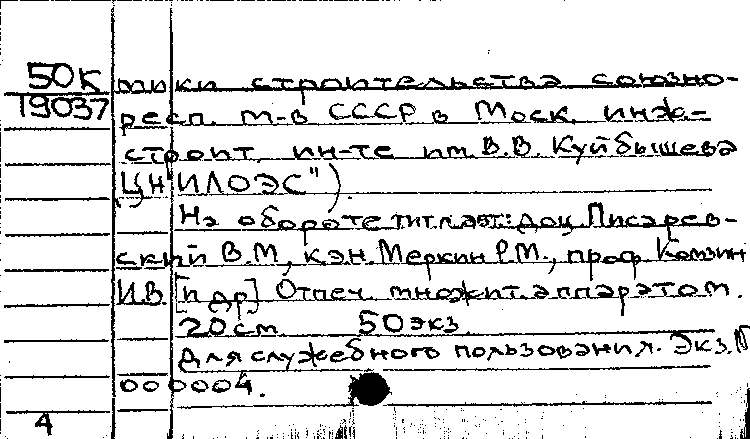 50К мики строительства союзно-
19037 респ. м-в СССР в Моск. инж.-
строит. ин-те им. В.В. Куйбышева
"ЦНИЛОЭС").
На обороте тит. л. авт.: доц. Писарев-
ский В.М., к.э.н. Меркин Р.М., проф. Комзин
И.В. [и др.] Отпеч. множит. аппаратом.
20 см. 50 экз.
Для служебного пользования. Экз. №
000004.
4